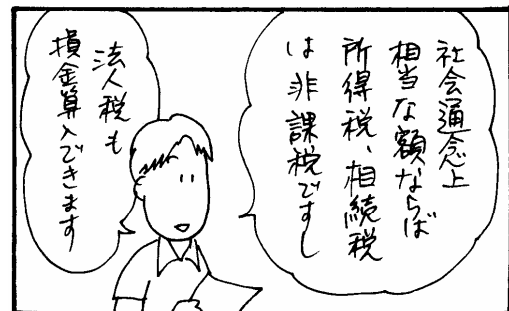 社会通念上
相当な額ならば
所得税、相続税
は非課税ですし
法人税も
損金算入できます